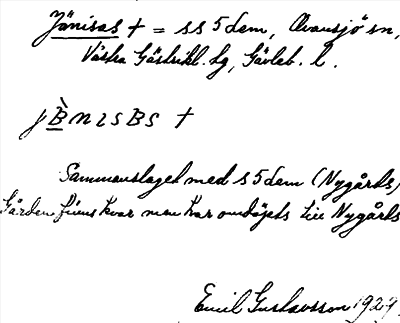 Jänisas † = s s 5 dem, Ovansjö sn,
Västra Gästrikl. tg, Gävleb. l.
jB̀nısBs †
Sammanslaget med s 5 dem (Nygårds)
Gården finns kvar men har omdöpts till Nygårds
Emil Gustavsson 1929